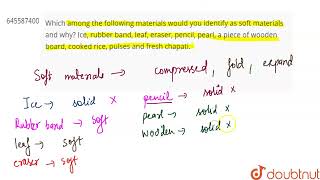 645587400
Which among the following materials would you identify as soft materials
and why? Ice, rubber band, leaf, eraser, pencil, pearl, a piece of wooden
board, cooked rice, pulses and fresh chapati.
Soft materials → compressed, fold, expand
Ice → solid x
pencil → solid x
Rubber band → soft
pearl → solid x
leaf → soft
wooden → solid x
eraser → soft
doubtnut